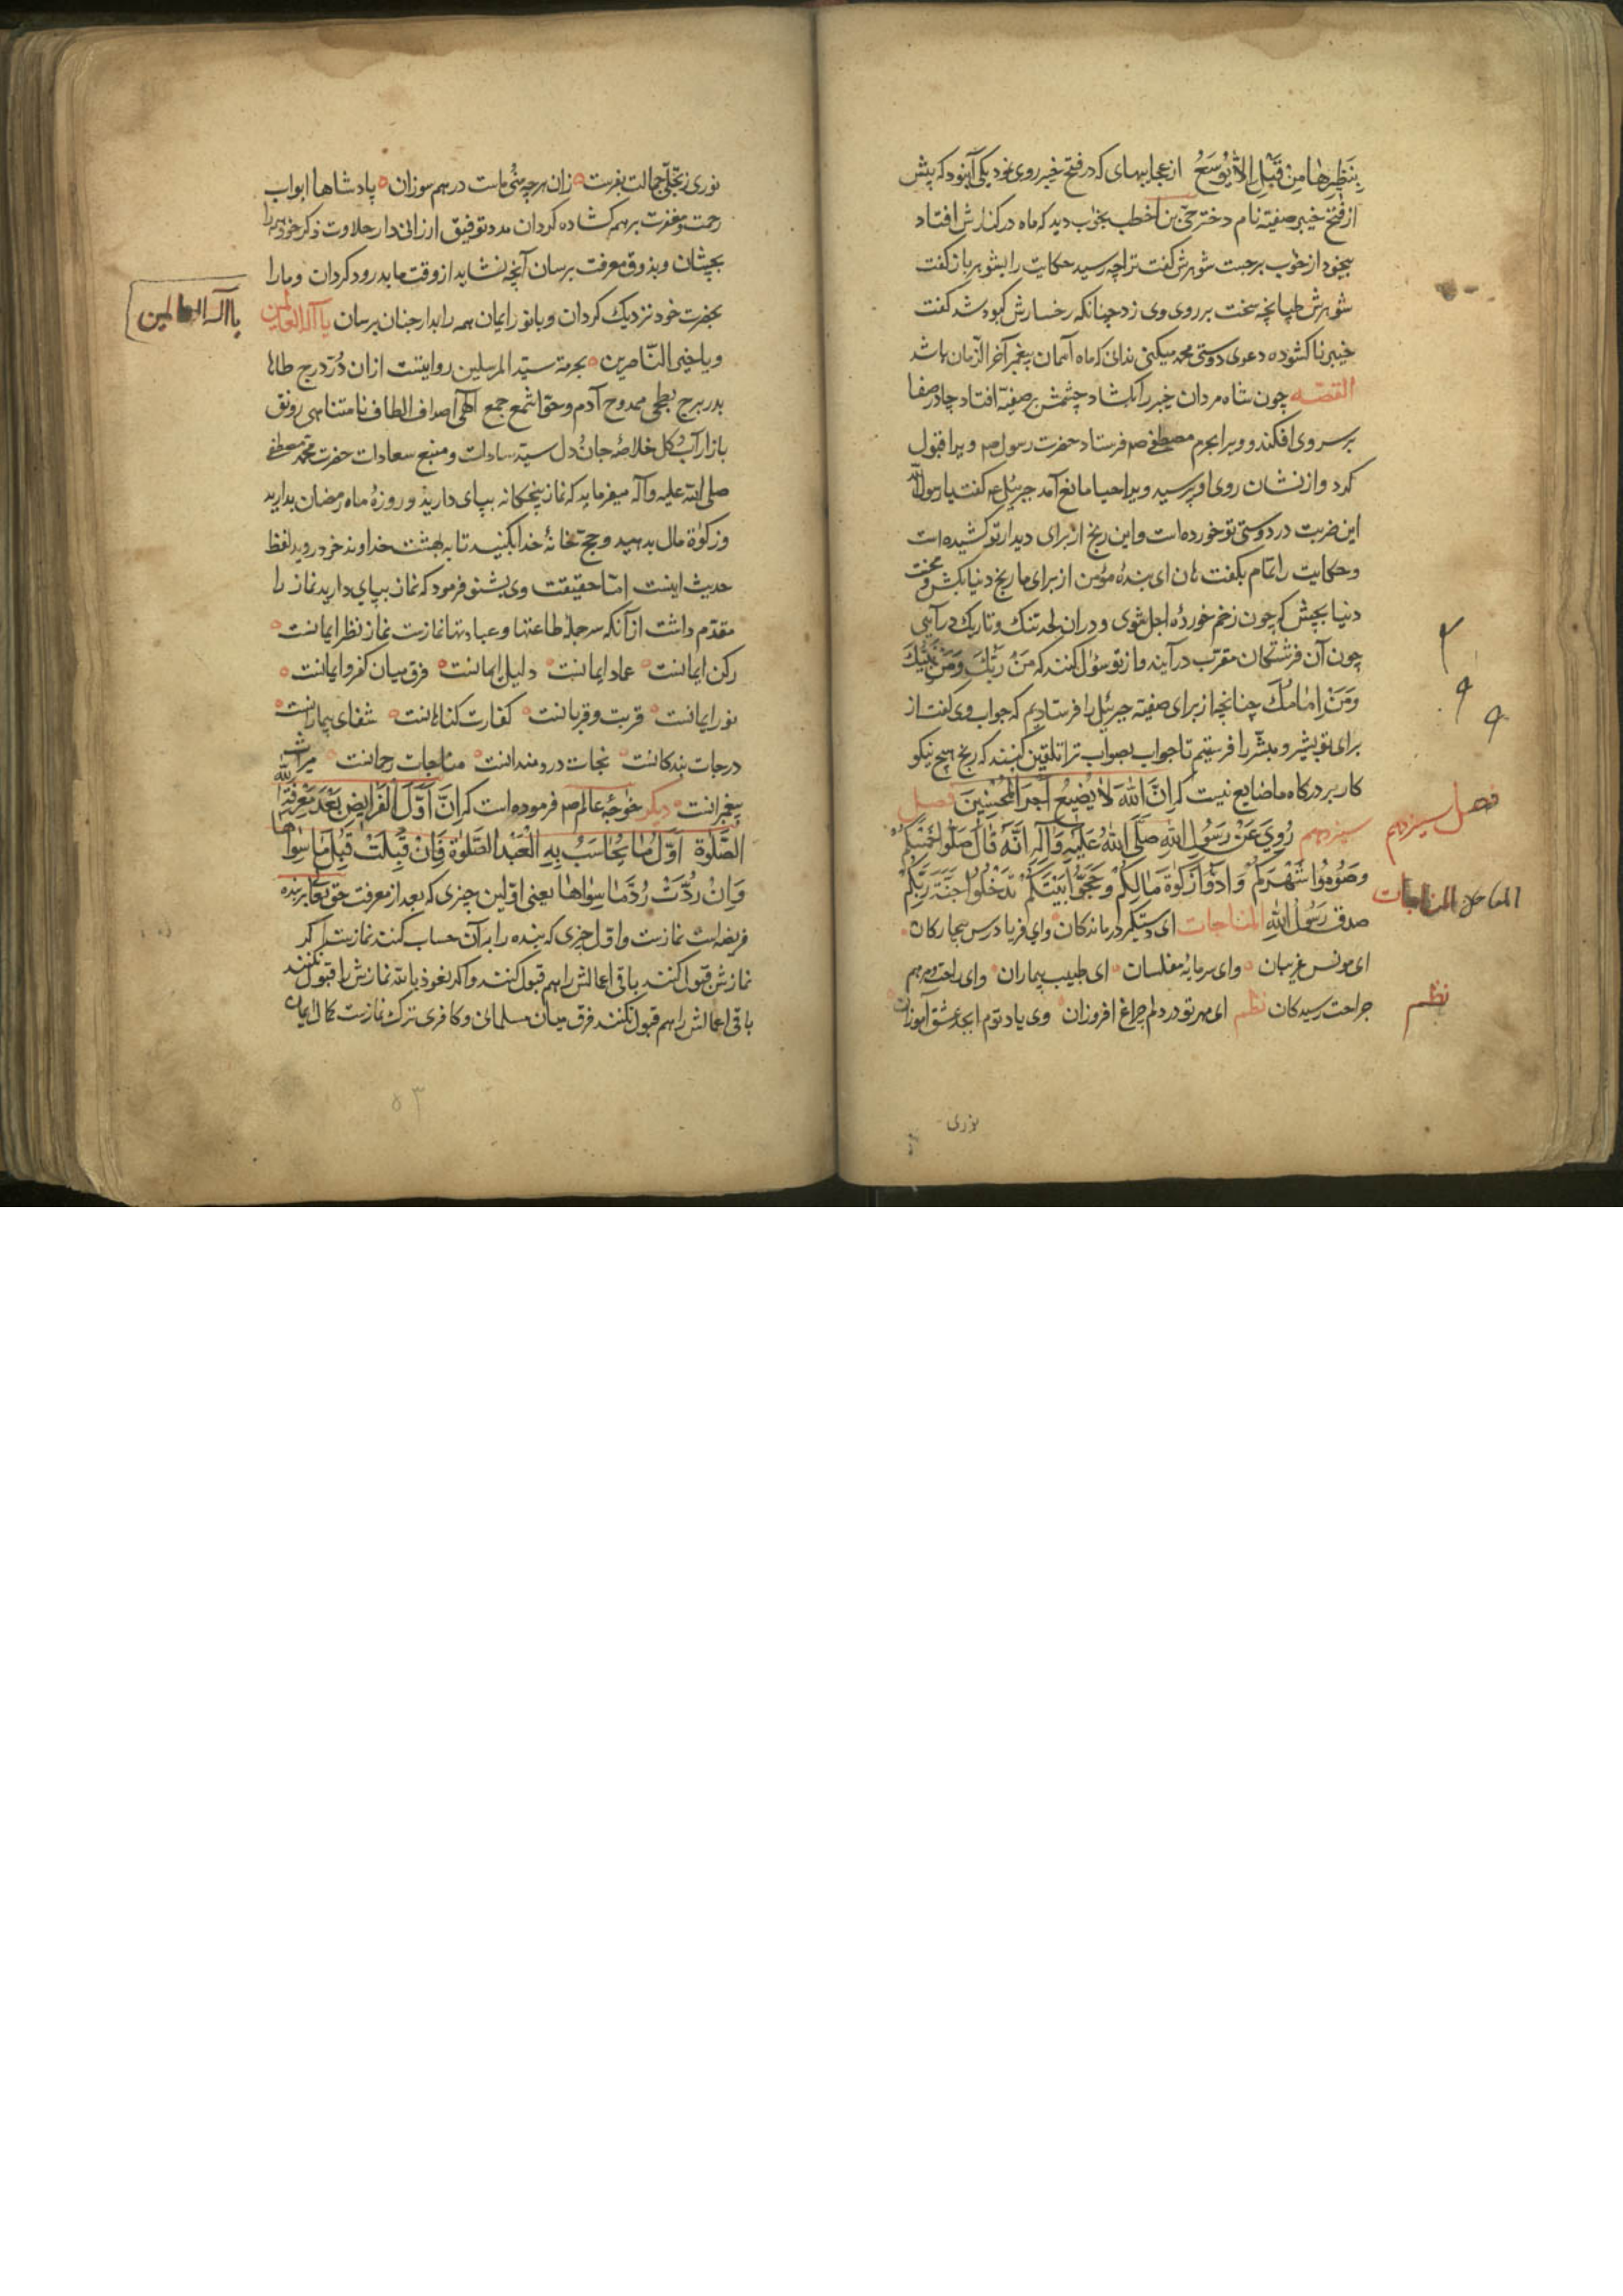 ینظرها من قبل الا یوشع از عجایبهای که در فتح خیبر روی نمود یکی آن بود که پیش
از فتح خیبر صفیّه نام دختر حیّ بن اخطب بخواب دید که ماه در کنارش افتاد
بیخود از خواب برجست شوهرش گفت ترا چه رسید حکایت را بشوهر باز گفت
شوهرش طپانچه سخت بر روی وی زد چنانکه رخسارش کبود شد گفت
خیبر ناکشوده دعوی دوستی محمد میکنی ندانی که ماه آسمان پیغمبر آخر الزّمان باشد
القصّه چون شاه مردان خیبر را بکشاد چشمش بر صفیّه افتاد چادر صفا
بر سر وی افکند و ویرا بحرم مصطفی ص فرستاد حضرت رسول ص ویرا قبول
کرد و از نشان روی او پرسید ویرا حیا مانع آمد جبرئیل ع گفت یا رسول الله
این ضربت در دوستی تو خورده است و این رنج از برای دیدار تو کشیده است
و حکایت را تمام بگفت هان ای بندهٔ مؤمن از برای ما رنج دنیا بکش و محنت
دنیا بچش که چون زخم خوردهٔ اجل شوی و در ان لحد تنک و تاریک درآیی
چون آن فرشتکان مقرّب درآیند و از تو سؤال کنند که مَنْ رَبُّكَ وَمَنْ نَبِيُّكَ
وَمَنْ اِمَامُكَ چنانچه از برای صفیّه جبرئیل را فرستادیم که جواب وی گفت از
برای تو بشیر و مبشّر را فرستیم تا جواب بصواب ترا تلقین کنند که رنج هیچ نیکو
کار بر درکاه ما ضایع نیست که اِنَّ اللهَ لَا يُضِيعُ اَجْرَ الْمُحْسِنِينَ فصل
سیزدهم رُوِيَ عَنْ رَسُولِ اللهِ صَلَّى اللهُ عَلَيْهِ وَآلِهِ اَنَّهُ قَالَ صَلُّوا خَمْسَكُمْ
وَصُومُوا شَهْرَكُمْ وَاَدُّوا زَكٰوةَ مَالِكُمْ وَحُجُّوا بَيْتَكُمْ تَدْخُلُوا جَنَّةَ رَبِّكُمْ
صدق رَسُولُ اللهِ المناجات ای دستکیر درماندکان وای فریادرس بیچارکان
ای مونس غریبان وای سرمایهٔ مفلسان ای طبیب بیماران وای راحت و مرهم
جراحت رسیدکان نظم ای مهر تو در دلم چراغ افروزان وی یاد توم ابجد عشق آموزان
فصل سیزدهم
المناجات
نظم
نوری
نوری ز تجلّی جمالت بفرست زان هرچه منی ماست در هم سوزان پادشاها ابواب
رحمت و مغفرت بر همه کشاده کردان مدد توفیق ارزانی دار حلاوت ذکر خود همه را
بچشان و بذوق معرفت برسان آنچه نشاید از وقت ما بدرود کردان و ما را
بحضرت خود نزدیک کردان و با نور ایمان همه را بدار جنان برسان یا اله العالمین
و یا خیر النّاصرین بحرمة سیّد المرسلین روایتست از ان دُرّ درج طاها
بدر برج بطحی ممدوح آدم و حوّا شمع جمع الهی اصداف الطاف نامتناهی رونق
بازار آب و کل خلاصهٔ جان و دل سیّد سادات و منبع سعادات حضرت محمّد مصطفی
صلی الله علیه و آله میفرماید که نماز پنجکانه بپای دارید و روزهٔ ماه رمضان بدارید
و زکوٰة مال بدهید و حج خانهٔ خدا بکنید تا به بهشت خداوند خود روید لفظ
حدیث اینست امّا حقیقت وی بشنو فرمود که نماز بپای دارید نماز را
مقدّم داشت از آنکه سر جملهٔ طاعتها و عبادتها نمازست نماز نظر ایمانست
رکن ایمانست عماد ایمانست دلیل ایمانست فرق میان کفر و ایمانست
نور ایمانست قربت و قربانست کفارت کناهانست شفای بیمارانست
درجات بندکانست نجات دردمندانست مناجات رحمانست میراث
پیغمبرانست دیکر خواجهٔ عالم ص فرموده است که اِنَّ اَوَّلَ الْفَرَايِضِ بَعْدَ مَعْرِفَةِ اللهِ
الصَّلٰوة اَوَّلُ مَا يُحَاسَبُ بِهِ الْعَبْدُ الصَّلٰوةُ فَاِنْ قُبِلَتْ قُبِلَ مَا سِوَاهَا
وَاِنْ رُدَّتْ رُدَّ مَا سِوَاهَا یعنی اوّلین چیزی که بعد از معرفت حق تعالی بر بنده
فریضه است نمازست و اوّل چیزی که بنده را بر آن حساب کنند نمازست اکر
نمازش قبول کنند باقی اعمالش را هم قبول کنند و اکر نعوذ بالله نمازش را قبول نکنند
باقی اعمالش را هم قبول نکنند فرق میان مسلمانی و کافری ترک نمازست کمال ایمان
یا اله العالمین
۵۳